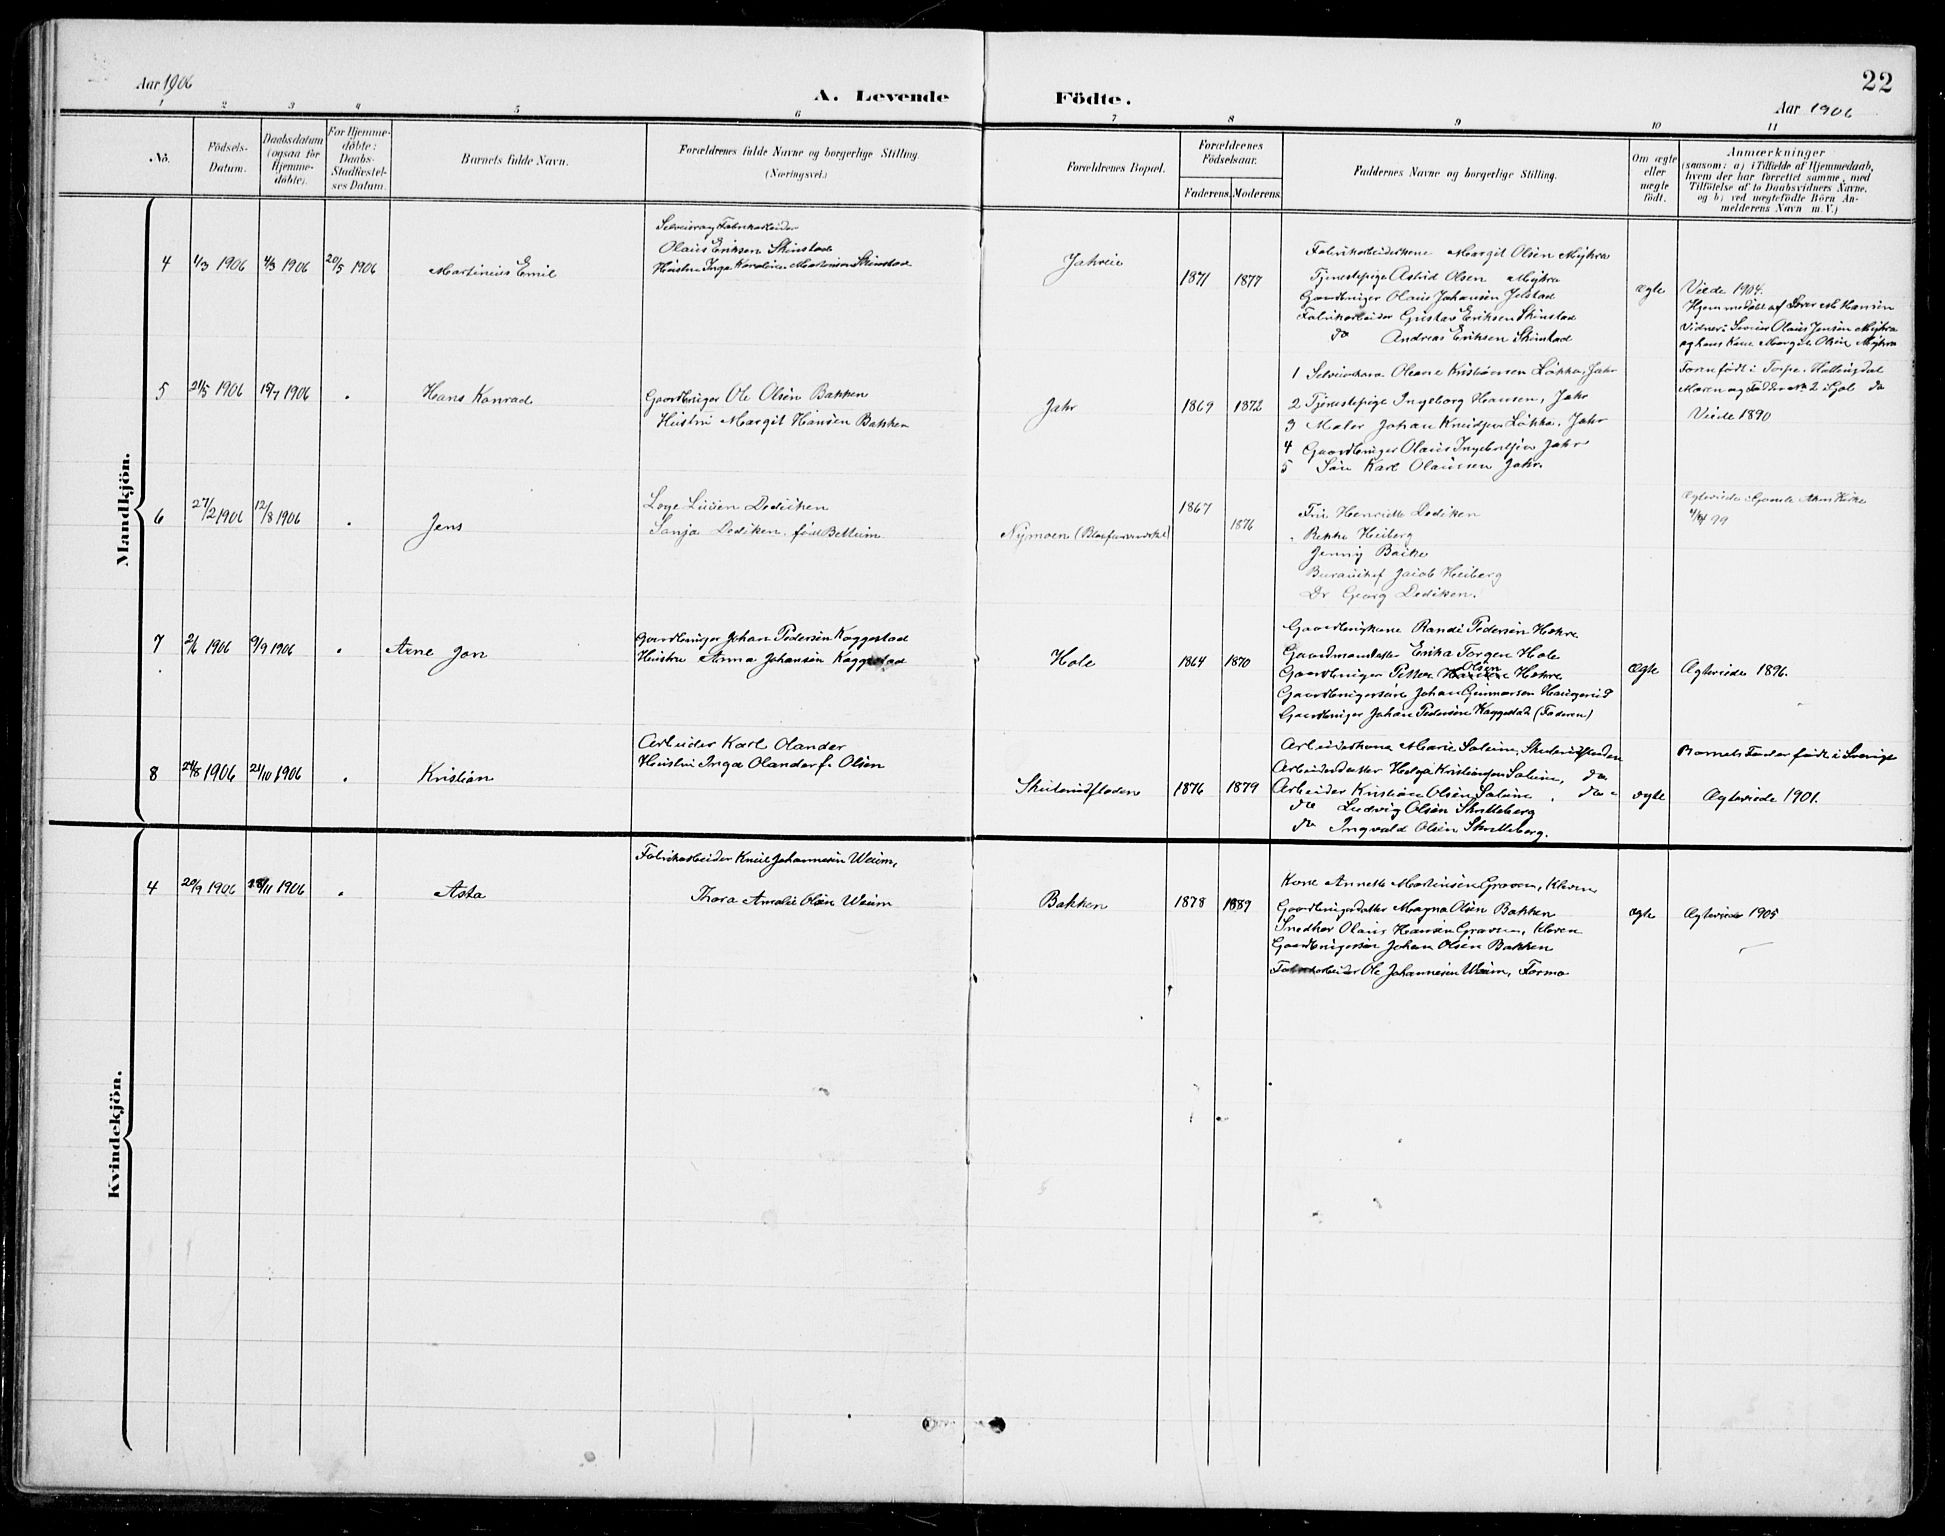 22
Aar 1906
A. Levende Födte.
Aar 1906
1 2 3 4 5 6 7 8 9 10 11
No.
Födsels-Datum.
Daabsdatum (ogsaa for Hjemme-döbte).
For Hjemme-döbte: Daabs-Stadfæstel-ses Datum.
Barnets fulde Navn.
Forældrenes fulde Navne og borgerlige Stilling.
(Næringsvei.)
Forældrenes Bopæl.
Forældrenes Födselsaar.
Faderens. Moderens.
Faddernes Navne og borgerlige Stilling.
Om ægte eller uægte födt.
Anmærkninger
(saasom: a) i Tilfælde af Hjemmedaab,
hvem der har forrettet samme, med
Tilföielse af to Daabsvidners Navne.
og b) ved uægtefödte Börn An-
melderens Navn m. V.)
Mandkjön.
4 1/3 1906 4/3 1906 20/5 1906
Martinius Emil
Selveier og Fabrikarbeider
Olaus Eriksen Skinstad
Hustru Inga Karoline Martinsen Skinstad
Jahreie
1871 1877
Fabrikarbeiderkone Margit Olsen Myhra
Tjenestepige Astrid Olsen Myhra
Gaardbruger Olaus Johansen Jelstad
Fabrikarbeider Gustav Eriksen Skinstad
do Andreas Eriksen Skinstad
ægte
Viede 1904.
Hjemmedöbt af Hansen
Vidner: Olaus Jensen Myhra
og hans Kone Margit Olsen Myhra
5 21/5 1906 15/7 1906 "
Hans Konrad
Gaardbruger Ole Olsen Bakken
Hustru Margit Hansen Bakken
Jahr
1869 1872
1 Selveierkone Oleane Kristiansen Lökka, Jahr
2 Tjenestepige Ingeborg Hansen, Jahr
3 Maler Johan Knudsen Lökka, Jahr
4 Gaardbruger Olaus Ingebretsen Jahr
5 Sön Karl Olaussen Jahr.
Faren födt i Torpe, Hallingdal
Moren og Fadder No 2 i Gol do
Viede 1890
6 27/2 1906 12/8 1906 "
Jens
Dedichen
Dediken, född Bettum
Nymoen (Blaafarveværket)
1867
1876
Fru Henriette Dediken
" Rekke Heiberg
Jenny Backe
Bureauchef Jacob Heiberg
Dr Georg Dediken.
Ægteviede i Gamle Aker Kirke
99
7 2/6 1906 9/9 1906 "
Arne Jon
Gaardbruger Johan Pedersen Kaggestad
Hustru Anna Johansen Kaggestad
Hole
1864 1870
Gaardbrugkone Randi Pedersen Hohre
Gaardmandsdatter Erika Torgen Hole
Gaardbruger Petter Olsen Hohre
Gaardbrugersön Johan Gunnarsen Haugerud
Gaardbruger Johan Pedersen Kaggestad (Faderen)
ægte
Ægteviede 1896.
8 24/8 1906 21/10 1906 "
Kristian
Arbeider Karl Olander
Hustru Inga Olander f. Olsen
Skuterudflaaen
1876 1879
Arbeiderkone Marie Solum, Skuterudflaaen
Arbeiderdatter Helga Kristiansen Solum, do
Arbeider Kristian Olsen Solum, do
do Ludvig Olsen Skutteberg
do Ingvald Olsen Skutteberg.
ægte
Barnets Fader födt i Sverige
Ægteviede 1901.
Kvindekjön.
4 20/9 1906 18/11 1906 "
Asta
Fabrikarbeider Knut Johannesen Weum,
Thora Amalie Olsen Weum
Bakken
1878 1889
Kone Annette Martinsen Graven, Kleven
Gaardbrugerdatter Magna Olsen Bakken
Snedker Olaus Hansen Graven, Kleven
Gaardbrugersön Johan Olsen Bakken
Fabrikarbeider Ole Johannesen Weum, Formo
ægte
Ægteviede 1905